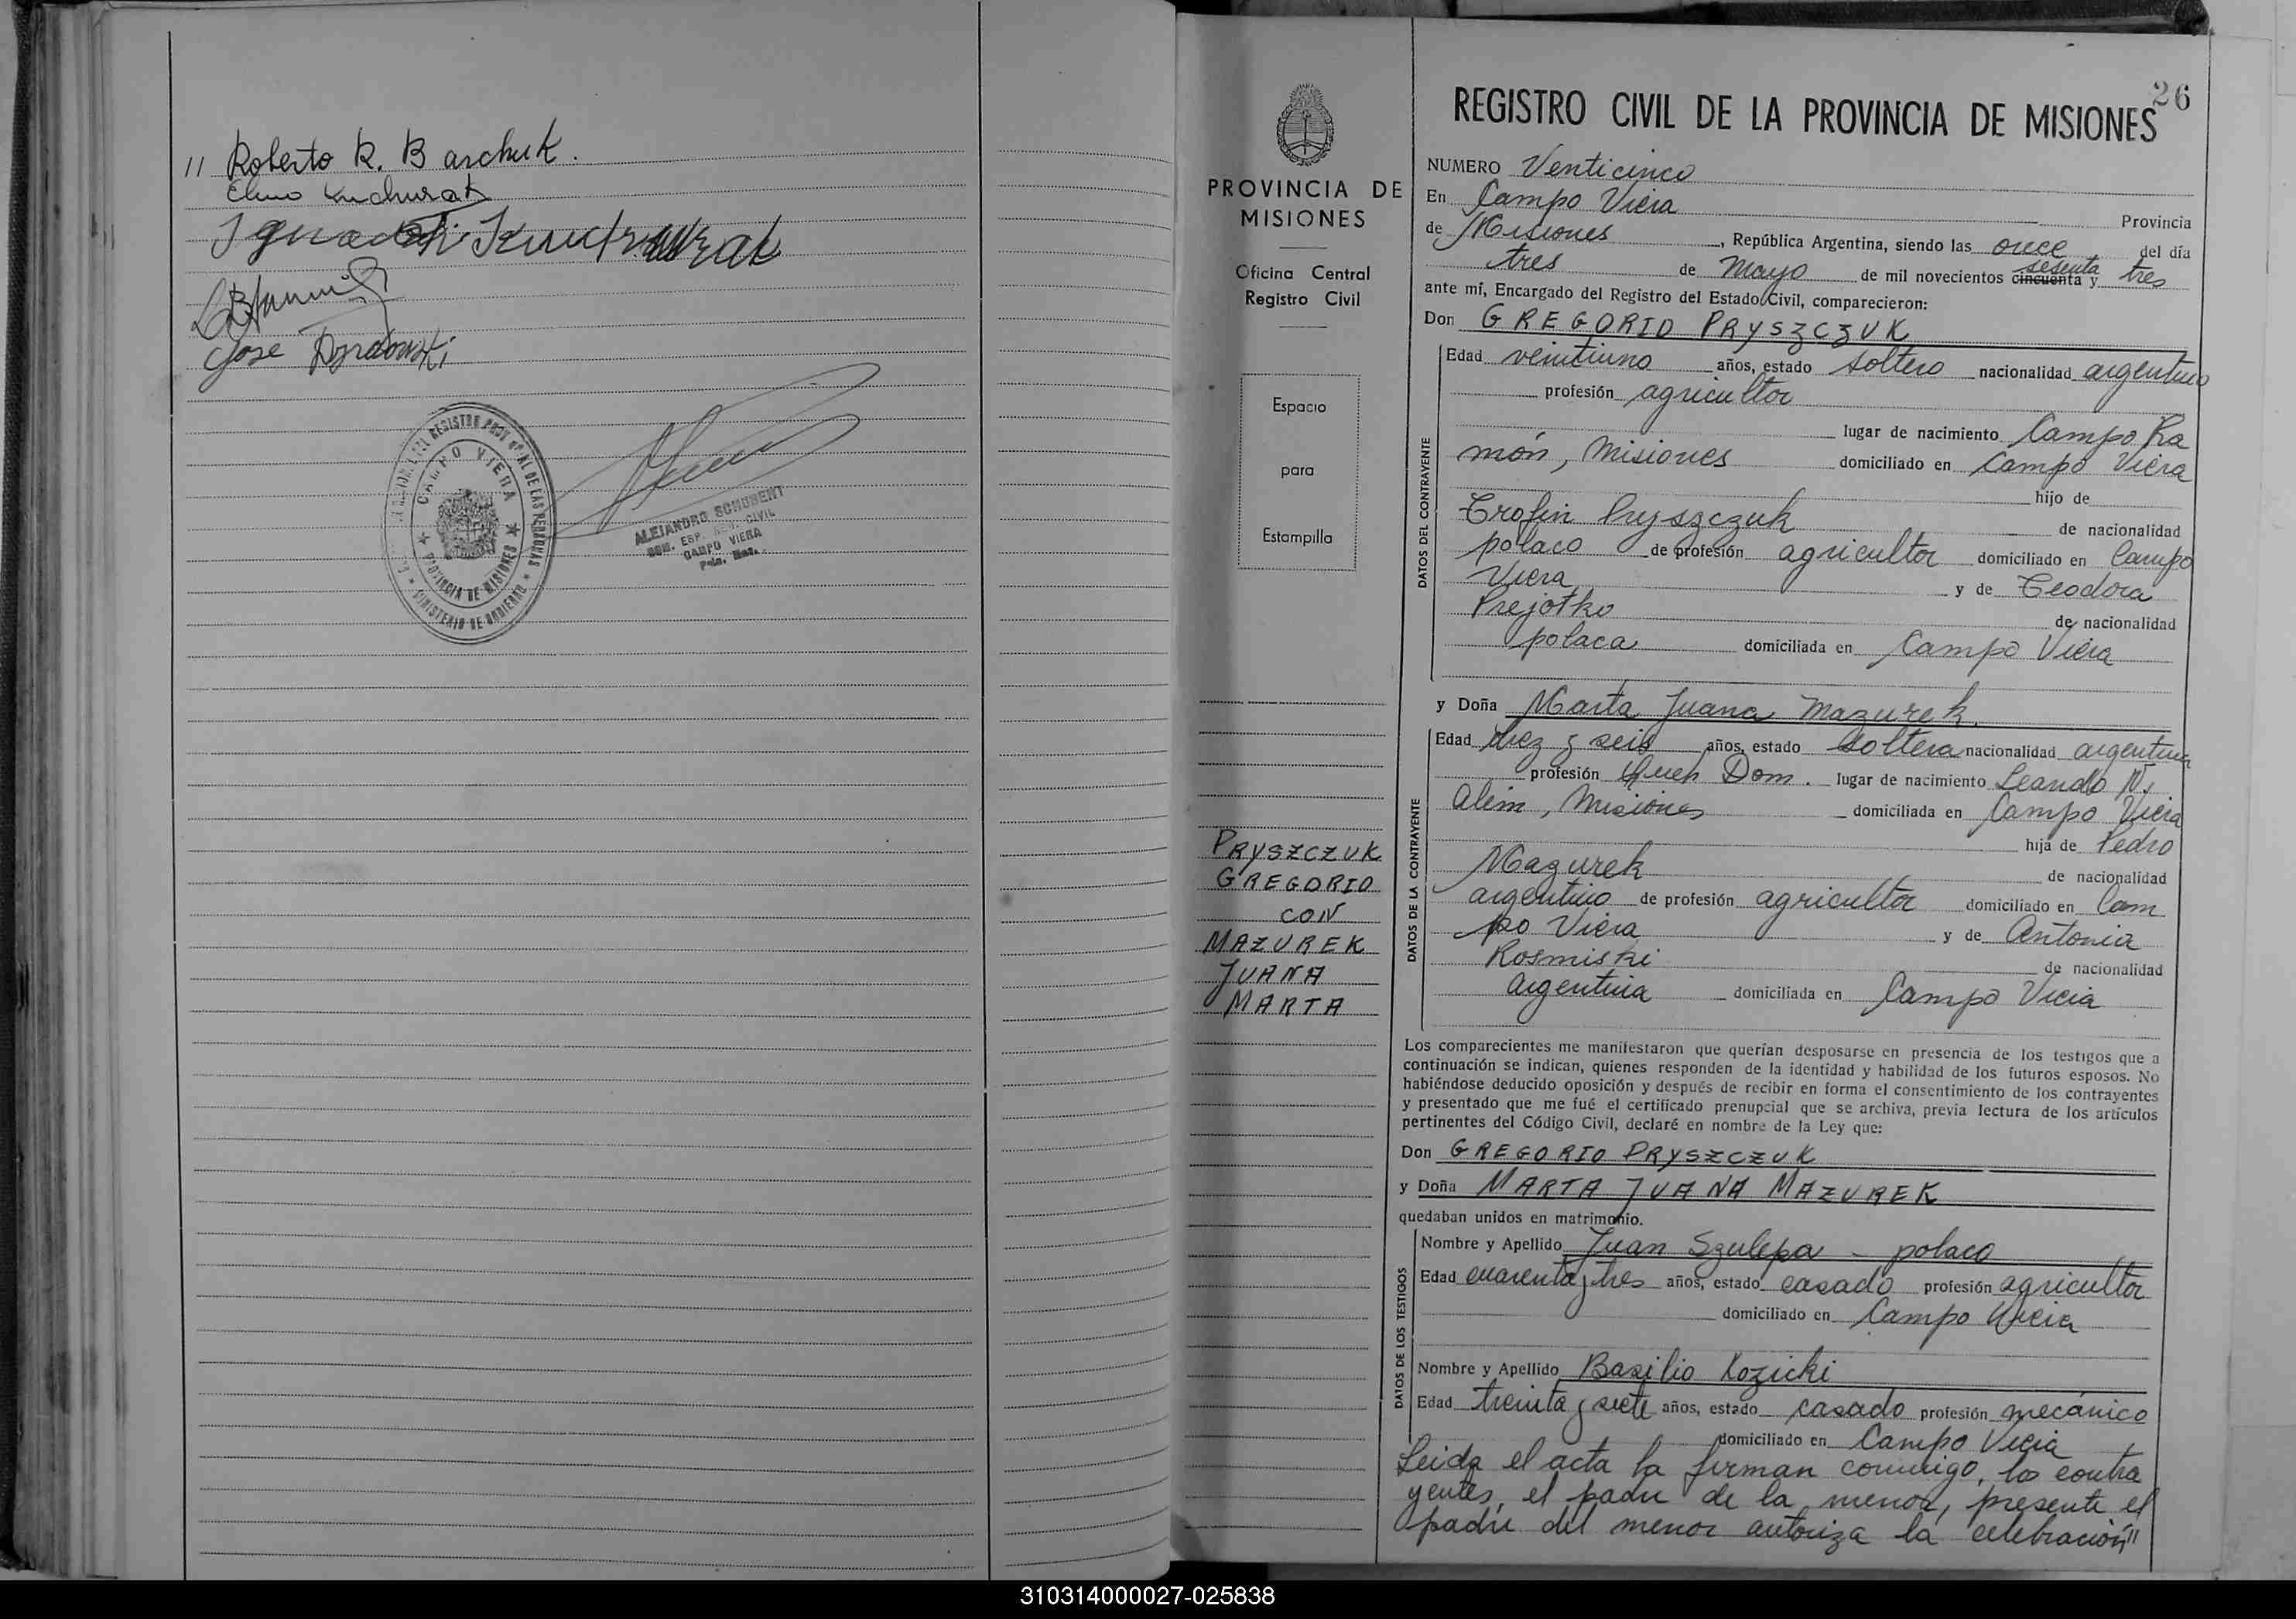 11 Roberto R. Barchuk.
Jose
CAMPO VIERA
PROVINCIA DE MISIONES
MINISTERIO DE GOBIERNO
ALEJANDRO
CAMPO VIERA
PROVINCIA DE
MISIONES
Oficina Central
Registro Civil
Espacio
para
Estampilla
PRYSZCZUK
GREGORIO
CON
MAZUREK
JUANA
MARTA
26
REGISTRO CIVIL DE LA PROVINCIA DE MISIONES
NUMERO Venticinco
En Campo Viera Provincia
de Misiones, República Argentina, siendo las once del día
tres de Mayo de mil novecientos cincuenta sesenta y tres
ante mí, Encargado del Registro del Estado Civil, comparecieron:
Don GREGORIO PRYSZCZUK
DATOS DEL CONTRAYENTE
Edad veintiuno años, estado soltero nacionalidad argentino
profesión agricultor
lugar de nacimiento Campo Ra
món, Misiones domiciliado en Campo Viera
hijo de
Trofin Pryszczuk de nacionalidad
polaco de profesión agricultor domiciliado en Campo
Viera y de Teodora
Prejotko de nacionalidad
polaca domiciliada en Campo Viera
y Doña Marta Juana Mazurek.
DATOS DE LA CONTRAYENTE
Edad diez y seis años, estado soltera nacionalidad argentina
profesión Queh Dom. lugar de nacimiento Leandro N.
Alem, Misiones domiciliada en Campo Viera
hija de Pedro
Mazurek de nacionalidad
argentino de profesión agricultor domiciliado en Cam
po Viera y de Antonia
Kosmiski de nacionalidad
argentina domiciliada en Campo Viera
Los comparecientes me manifestaron que querían desposarse en presencia de los testigos que a
continuación se indican, quienes responden de la identidad y habilidad de los futuros esposos. No
habiéndose deducido oposición y después de recibir en forma el consentimiento de los contrayentes
y presentado que me fué el certificado prenupcial que se archiva, previa lectura de los artículos
pertinentes del Código Civil, declaré en nombre de la Ley que:
Don GREGORIO PRYSZCZUK
y Doña MARTA JUANA MAZUREK
quedaban unidos en matrimonio.
DATOS DE LOS TESTIGOS
Nombre y Apellido Juan Szulepa - polaco
Edad cuarenta y tres años, estado casado profesión agricultor
domiciliado en Campo Viera
Nombre y Apellido Basilio Kozicki
Edad treinta y siete años, estado casado profesión mecánico
domiciliado en Campo Viera
Leida el acta la firman conmigo, los contra
yentes, el padre de la menor, presente el
padre del menor autoriza la celebración"
310314000027-025838